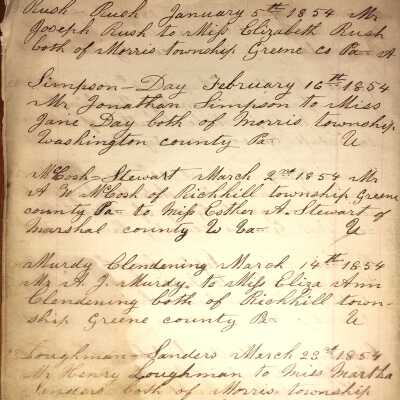 Rush - Rush January 5th 1854 Mr
Joseph Rush to Miss Elizabeth Rush
both of Morris township Greene co Pa- A
Simpson - Day February 16th 1854
Mr Jonathan Simpson to Miss
Jane Day both of Morris township
Washington county Pa- U
McCosh - Stewart March 2nd 1854 Mr
A W McCosh of Richhill township Greene
county Pa- to Miss Esther A. Stewart of
Marshal county W Va- U
Murdy Clendening March 14th 1854
Mr A. J. Murdy. to Miss Eliza Ann
Clendening both of Richhill town-
ship Greene county Pa- U
Loughman - Sanders March 23rd 1854
Mr Henry Loughman to Miss Martha
Sanders both of Morris township